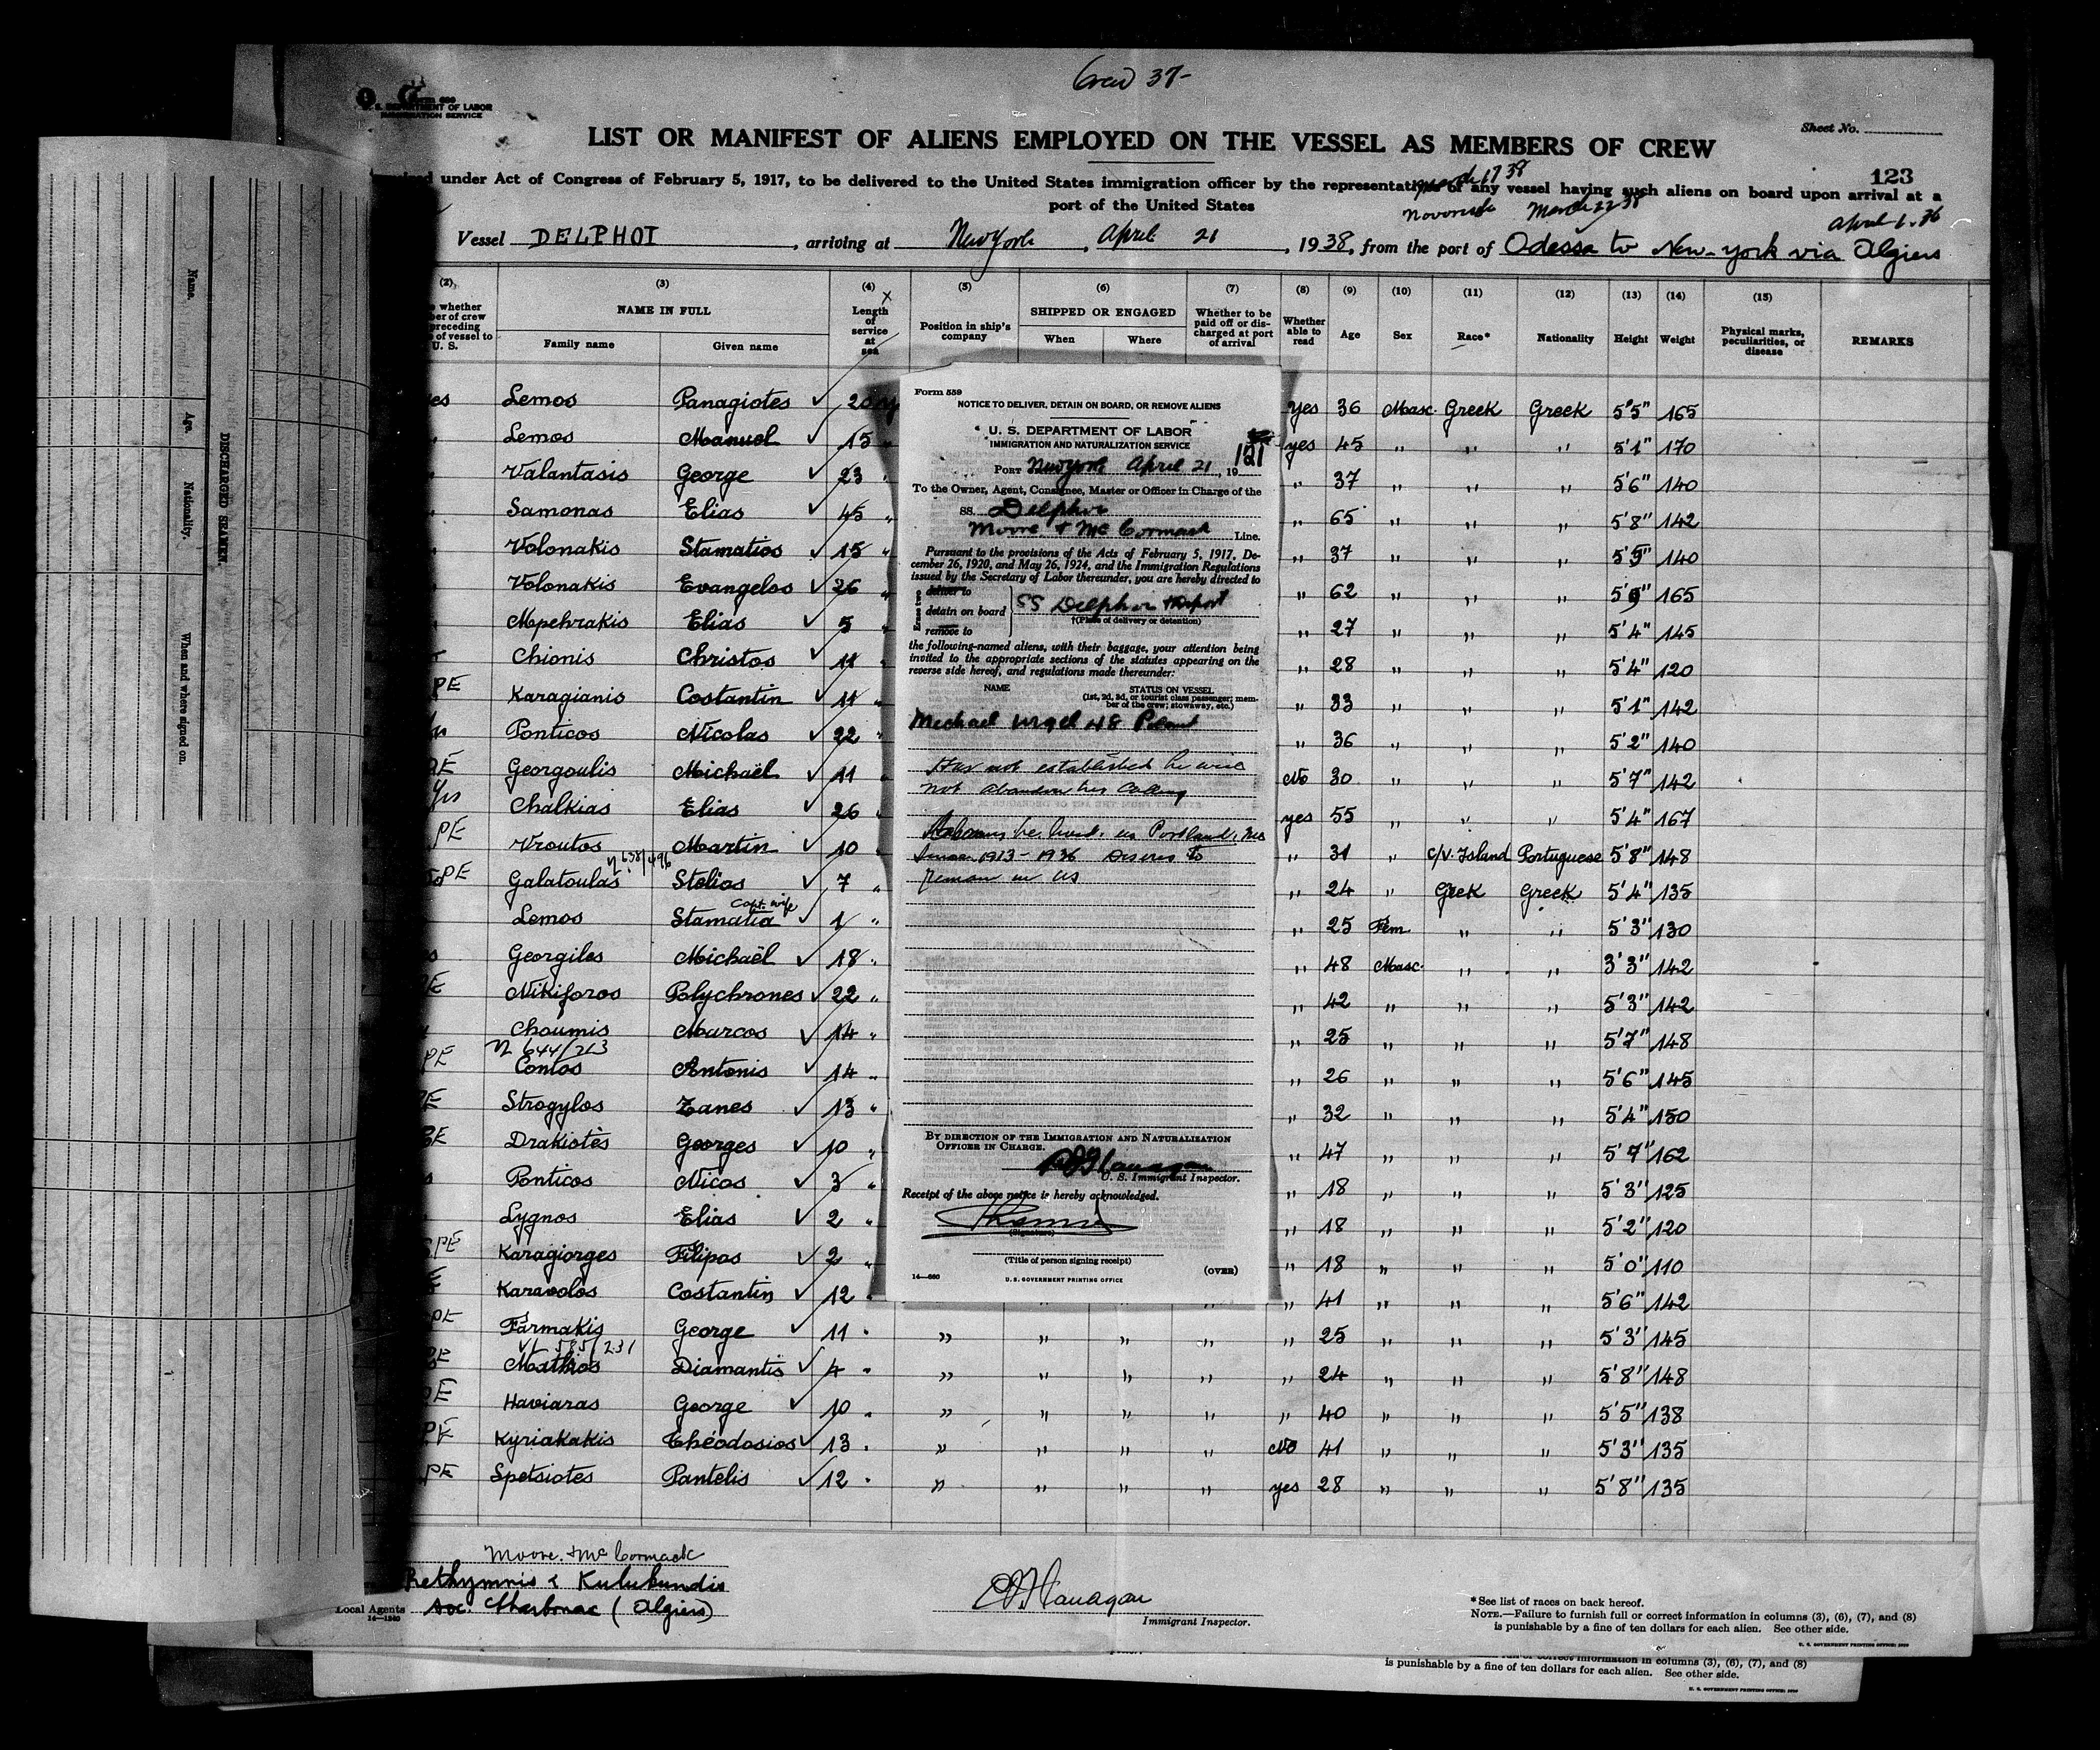 Crew 37-
U. S. DEPARTMENT OF LABOR
IMMIGRATION SERVICE
Sheet No.
LIST OR MANIFEST OF ALIENS EMPLOYED ON THE VESSEL AS MEMBERS OF CREW
123
under Act of Congress of February 5, 1917, to be delivered to the United States immigration officer by the representative of any vessel having such aliens on board upon arrival at a
port of the United States
March 22 38
Vessel DELPHOI, arriving at New York, April 21, 1938, from the port of Odessa to New-York via Algiers
(2) (3) (4) (5) (6) (7) (8) (9) (10) (11) (12) (13) (14) (15)
whether
of crew
preceding
of vessel to
U. S.
NAME IN FULL
Family name Given name
Length of service at sea
Position in ship's company
SHIPPED OR ENGAGED
When Where
Whether to be paid off or discharged at port of arrival
Whether able to read
Age Sex Race* Nationality Height Weight
Physical marks, peculiarities, or disease
REMARKS
Lemos Panagiotes 20 yes 36 Masc. Greek Greek 5'5" 165
Lemos Manuel 15 yes 45 " " " 5'1" 170
Valantasis George 23 " 37 " " " 5'6" 140
Samonas Elias 45 " " 65 " " " 5'8" 142
Volonakis Stamatios 15 " " 37 " " " 5'5" 140
Volonakis Evangelos 26 " " 62 " " " 165
Mpehrakis Elias 5 " 27 " " " 5'4" 145
Chionis Christos 11 " 28 " " " 5'4" 120
PE Karagianis Costantin 11 " " 33 " " " 5'1" 142
Ponticos Nicolas 22 " " 36 " " " 5'2" 140
Georgoulis Michaël 11 No 30 " " " 5'7" 142
Yes Chalkias Elias 26 " yes 55 " " " 5'4" 167
PE Vroutos Martin 10 " 31 " c/v. Island Portuguese 5'8" 148
638/496
PE Galatoulas Stelios 7 " " 24 " Greek Greek 5'4" 135
Capt. wife
Lemos Stamatia 1 " " 25 Fem. " " 5'3" 130
Georgiles Michaël 18 " " 48 Masc. " " 3'3" 142
Nikiforos Polychrones 22 " " 42 " " " 5'3" 142
Choumis Marcos 14 " " 25 " " " 5'7" 148
644/213
PE Contos Antonis 14 " " 26 " " " 5'6" 145
Strogylos Zanes 13 " " 32 " " " 5'4" 150
Drakiotès Georges 10 " " 47 " " " 5'7" 162
Ponticos Nicos 3 " " 18 " " " 5'3" 125
Lygnos Elias 2 " " 18 " " " 5'2" 120
PE Karagiorges Filipas 2 " " 18 " " " 5'0" 110
Karavolos Costantin 12 " " 41 " " " 5'6" 142
PE Farmakis George 11 " " " " " " 25 " " " 5'3" 145
585/231
Mathios Diamantis 4 " " " " " " 24 " " " 5'8" 148
Haviaras George 10 " " " " " " 40 " " " 5'5" 138
PE Kyriakakis Théodosios 13 " " " " " No 41 " " " 5'3" 135
PE Spetsiotes Pantelis 12 " " " " " yes 28 " " " 5'8" 135
Form 559
NOTICE TO DELIVER, DETAIN ON BOARD, OR REMOVE ALIENS
U. S. DEPARTMENT OF LABOR
IMMIGRATION AND NATURALIZATION SERVICE
121
PORT New York April 21, 19
To the Owner, Agent, Consignee, Master or Officer in Charge of the
SS. Delphoi
Moore & McCormack Line.
Pursuant to the provisions of the Acts of February 5, 1917, De-
cember 26, 1920, and May 26, 1924, and the Immigration Regulations
issued by the Secretary of Labor thereunder, you are hereby directed to
Erase two
deliver to
detain on board SS Delphoi
†(Place of delivery or detention)
remove to
the following-named aliens, with their baggage, your attention being
invited to the appropriate sections of the statutes appearing on the
reverse side hereof, and regulations made thereunder:
NAME STATUS ON VESSEL
(1st, 2d, 3d, or tourist class passenger; mem-
ber of the crew; stowaway, etc.)
Michael 48 Poland
Has not established he will
not abandon his calling
he lived in Portland, Me
1913-1936 Desires to
remain in US
BY DIRECTION OF THE IMMIGRATION AND NATURALIZATION
OFFICER IN CHARGE.
Flanagan
U. S. Immigrant Inspector.
Receipt of the above notice is hereby acknowledged.
(Signature)
(Title of person signing receipt)
14—660 U. S. GOVERNMENT PRINTING OFFICE (OVER)
Name. Age. Nationality. When and where signed on.
DISCHARGED SEAMEN.
Moore & McCormack
Rethymnis & Kulukundis
Local Agents Soc. Charbonac (Algiers)
14—1240
Flanagan
Immigrant Inspector.
*See list of races on back hereof.
NOTE.—Failure to furnish full or correct information in columns (3), (6), (7), and (8)
is punishable by a fine of ten dollars for each alien. See other side.
U. S. GOVERNMENT PRINTING OFFICE
correct information in columns (3), (6), (7), and (8)
is punishable by a fine of ten dollars for each alien. See other side.
U. S. GOVERNMENT PRINTING OFFICE